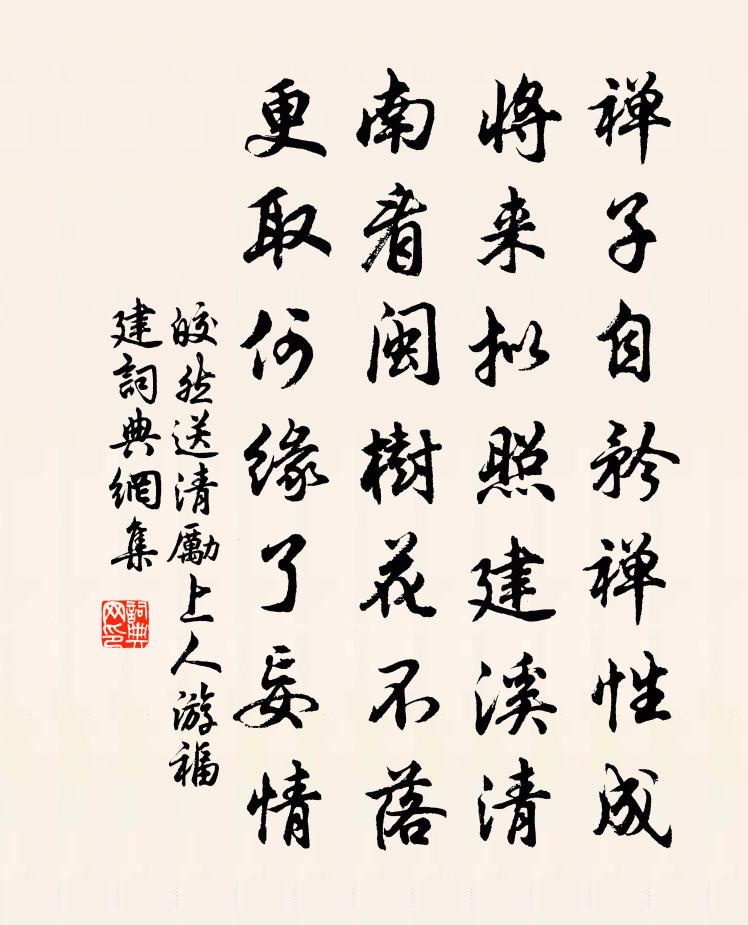 禅子自矜禅性成
将来拟照建溪清
南看闽樹花不落
更取何缘了妄情
皎然送清勵上人游福
建詞典網集
詞典网印